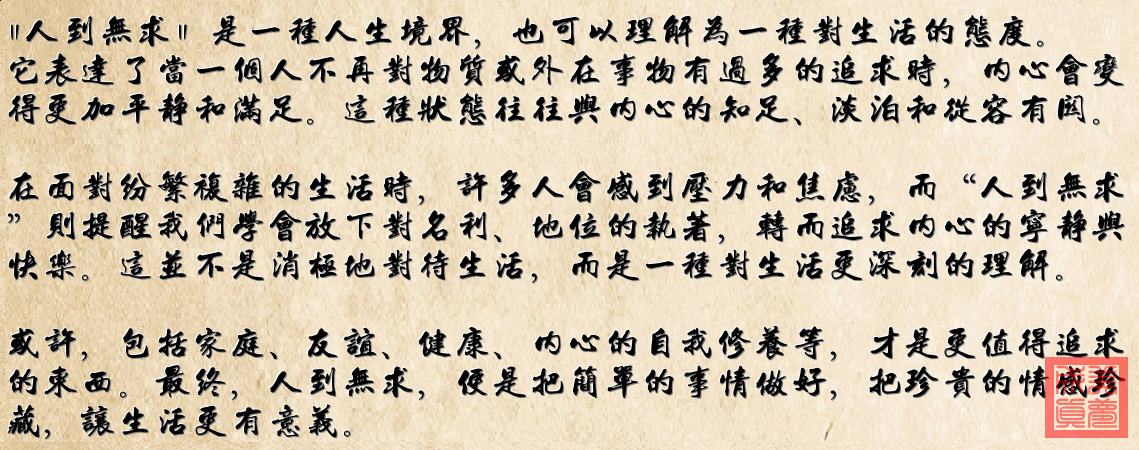 "人到無求" 是一種人生境界，也可以理解為一種對生活的態度。
它表達了當一個人不再對物質或外在事物有過多的追求時，內心會變
得更加平靜和滿足。這種狀態往往與內心的知足、淡泊和從容有關。
在面對紛繁複雜的生活時，許多人會感到壓力和焦慮，而“人到無求
”則提醒我們學會放下對名利、地位的執著，轉而追求內心的寧靜與
快樂。這並不是消極地對待生活，而是一種對生活更深刻的理解。
或許，包括家庭、友誼、健康、內心的自我修養等，才是更值得追求
的東西。最終，人到無求，便是把簡單的事情做好，把珍貴的情感珍
藏，讓生活更有意義。